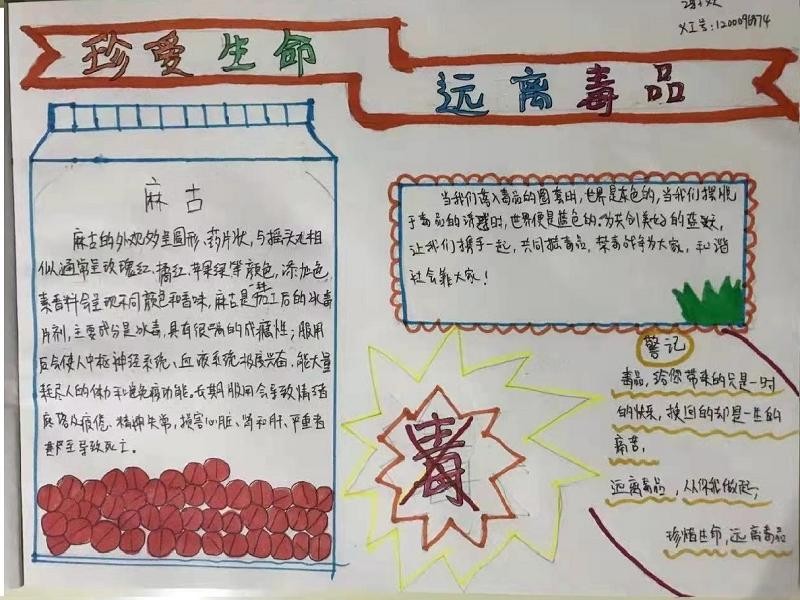 义工号:1200098874
珍爱生命
远离毒品
麻古
麻古的外观多呈圆形、药片状,与摇头丸相
似通常呈玫瑰红、橘红、苹果绿等颜色,添加色
素香料会呈现不同颜色和香味,麻古是一种加工后的冰毒
片剂,主要成分是冰毒,具有很强的成瘾性;服用
后会使人中枢神经系统、血液系统极度兴奋,能大量
耗尽人的体力和免疫功能。长期服用会导致情绪
低落及疲倦、精神失常,损害心脏、肾和肝、严重者
甚至导致死亡。
当我们落入毒品的圈套时,世界是灰色的,当我们摆脱
于毒品的诱惑时,世界便是蓝色的。为共创美好的蓝天,
让我们携手一起,共同抵毒品,禁毒战争为大家,和谐
社会靠大家!
警记
毒品,给你带来的只是一时
的快乐,换回的却是一生的
痛苦,
远离毒品,从你我做起;
珍惜生命,远离毒品
毒